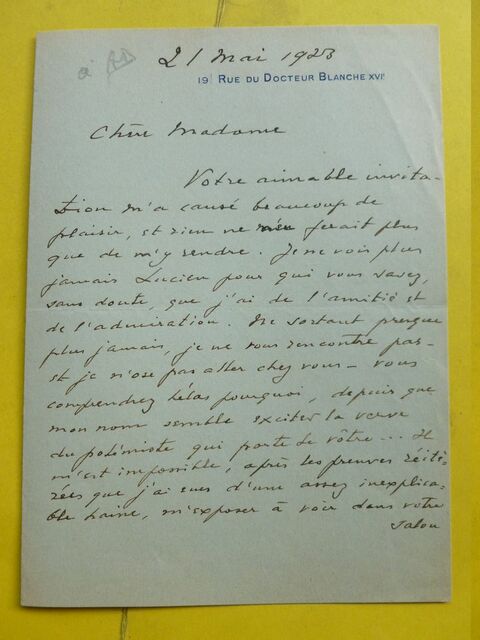 21 mai 1923
19 RUE DU DOCTEUR BLANCHE XVIᵉ
Chère Madame
Votre aimable invita-
tion m'a causé beaucoup de
plaisir, et rien ne m'en ferait plus
que de m'y rendre. Je ne vois plus
jamais Lucien pour qui vous savez,
sans doute, que j'ai de l'amitié et
de l'admiration. Ne sortant presque
plus jamais, je ne vous rencontre pas –
et je n'ose pas aller chez vous – vous
comprendrez hélas pourquoi, depuis que
mon nom semble exciter la verve
du polémiste qui porte le vôtre... Il
m'est impossible, après les preuves réité-
rées que j'ai eues d'une assez inexplica-
ble haine, m'exposer à voir dans votre
salon